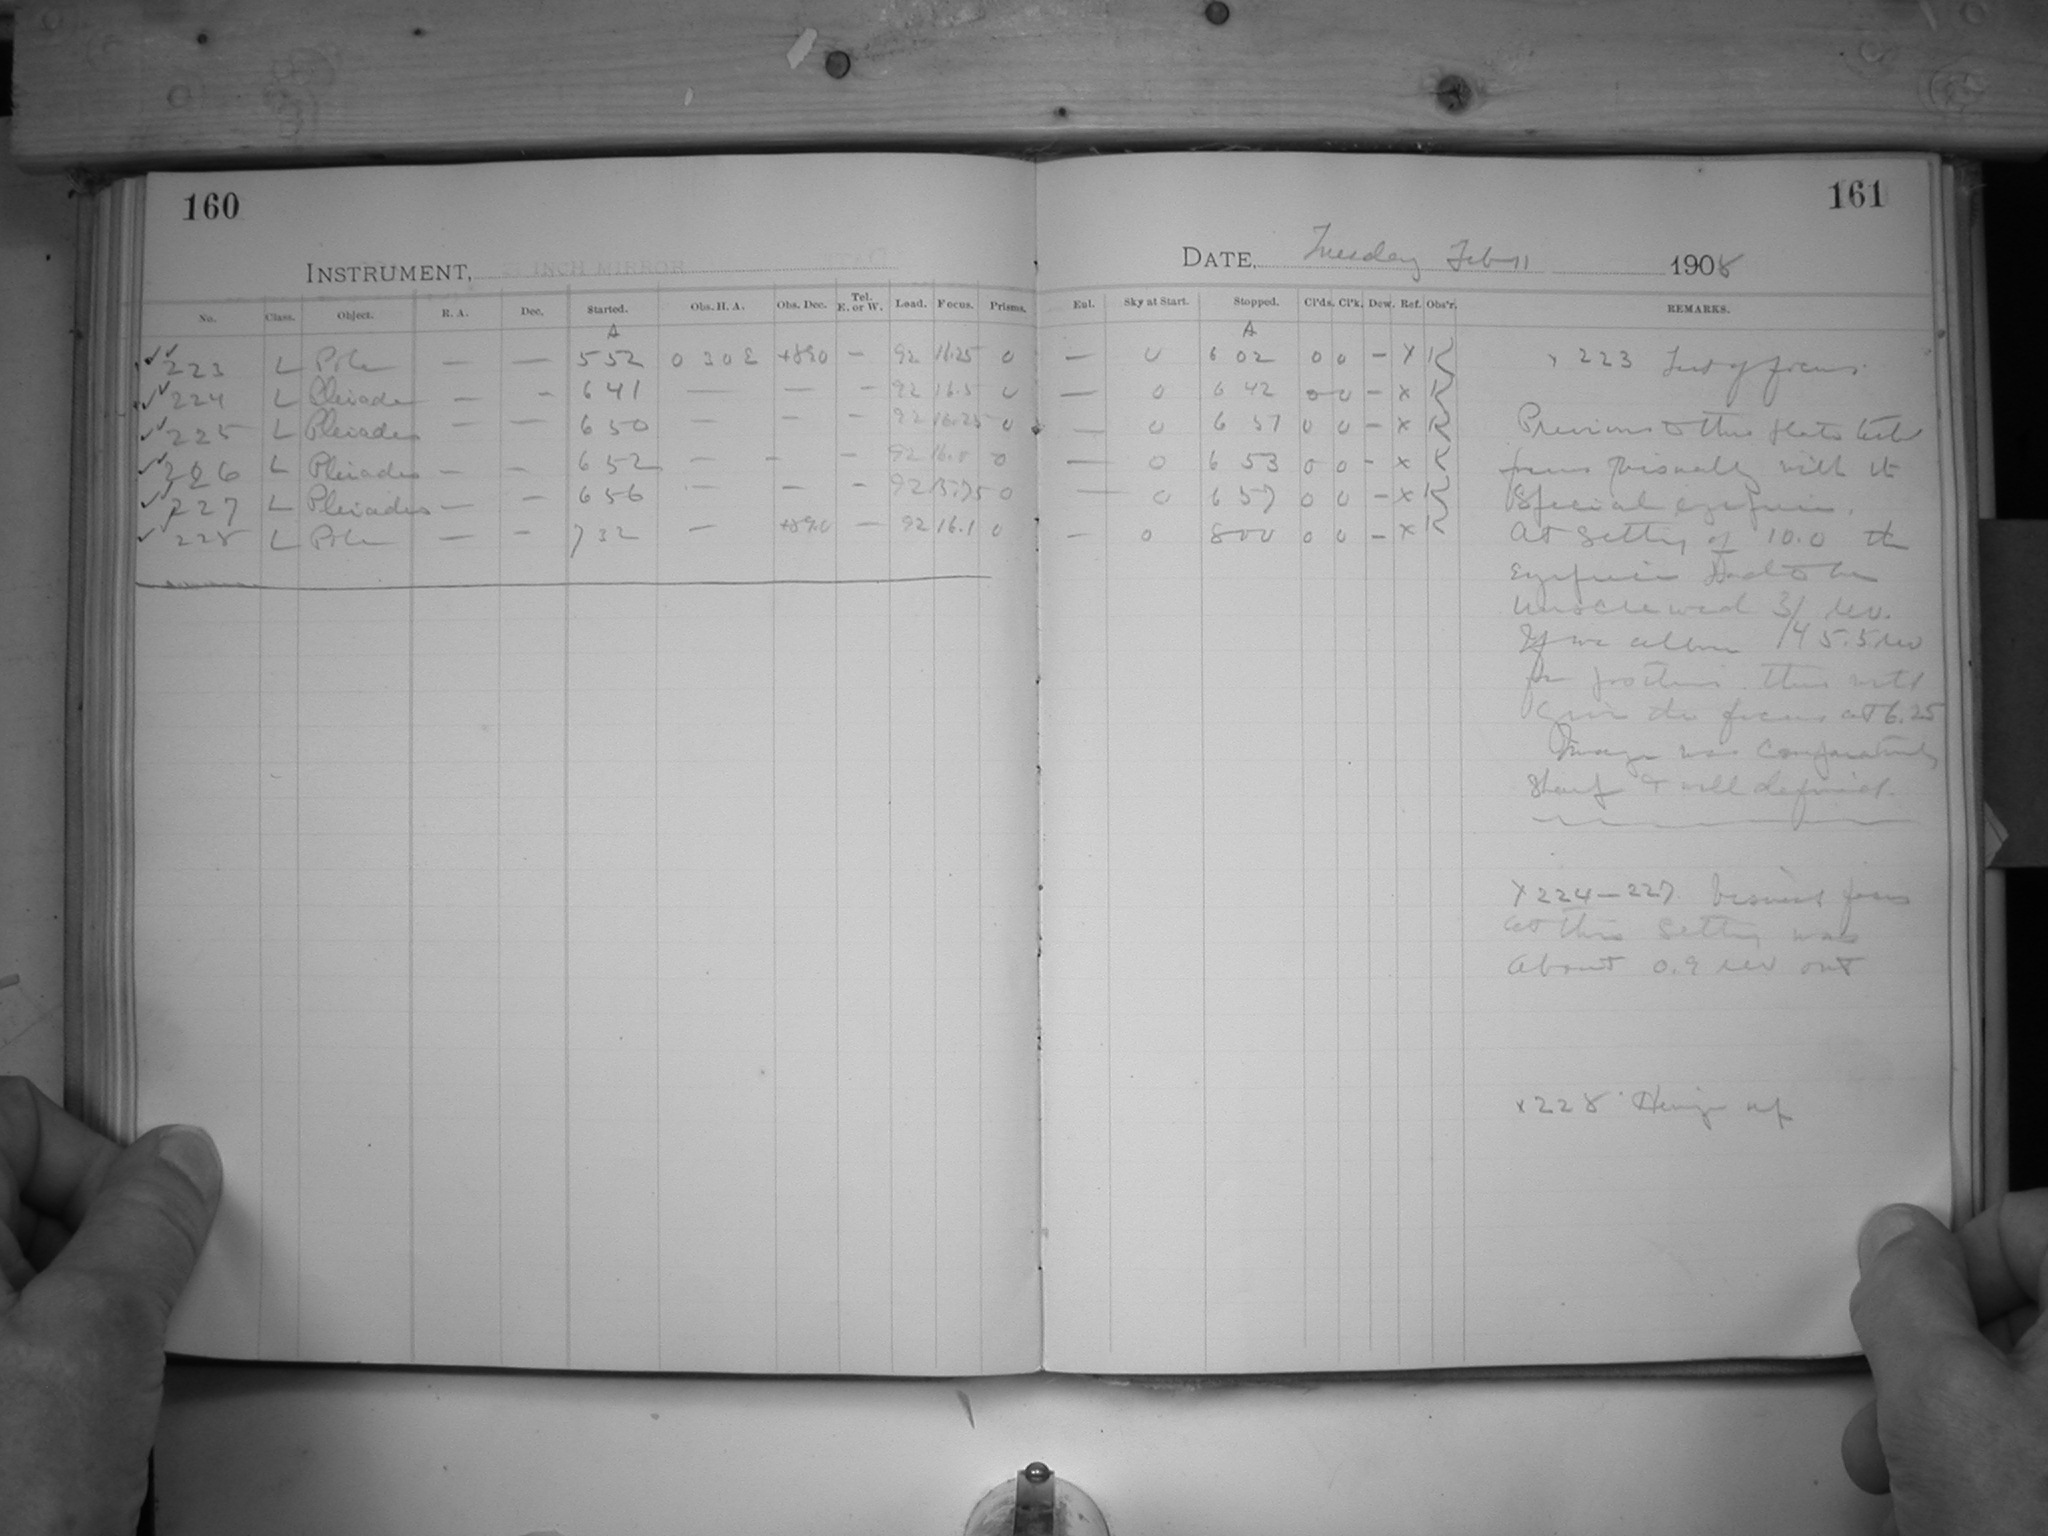 160
161
INSTRUMENT,
DATE, Tuesday Feb 11 1908
No. Class. Object. R. A. Dec. Started. Obs. H. A. Obs. Dec. Tel. E. or W. Load. Focus. Prisms. Eul. Sky at Start. Stopped. Cl'ds. Cl'k. Dew. Ref. Obs'r. REMARKS.
A A
✓✓ 223 L Pole — — 5 52 0 30 E +89.0 — 92 16.25 0 — 0 6 02 0 0 — X K
✓✓ 224 L Pleiades — — 6 41 — — — 92 16.5 0 — 0 6 42 0 0 — X K
✓✓ 225 L Pleiades — — 6 50 — — — 92 16.25 0 — 0 6 51 0 0 — X K
✓✓ 226 L Pleiades — — 6 52 — — — 92 16.0 0 — 0 6 53 0 0 — X K
✓✓ 227 L Pleiades — — 6 56 — — — 92 15.75 0 — 0 6 57 0 0 — X K
✓ 228 L Pole — — 7 32 — +89.0 — 92 16.1 0 — 0 8 00 0 0 — X K
x 223 Test of focus.
Previous to this plate test
focus visually with the
Special eyepiece.
At setting of 10.0 the
Eyepiece had to be
unscrewed 3/4 rev.
If we allow 5.5 rev
for this will
give the focus at 6.25
Image was comparatively
Sharp & well defined.
X 224—227 focus
at this setting was
About 0.9 rev out
x 228